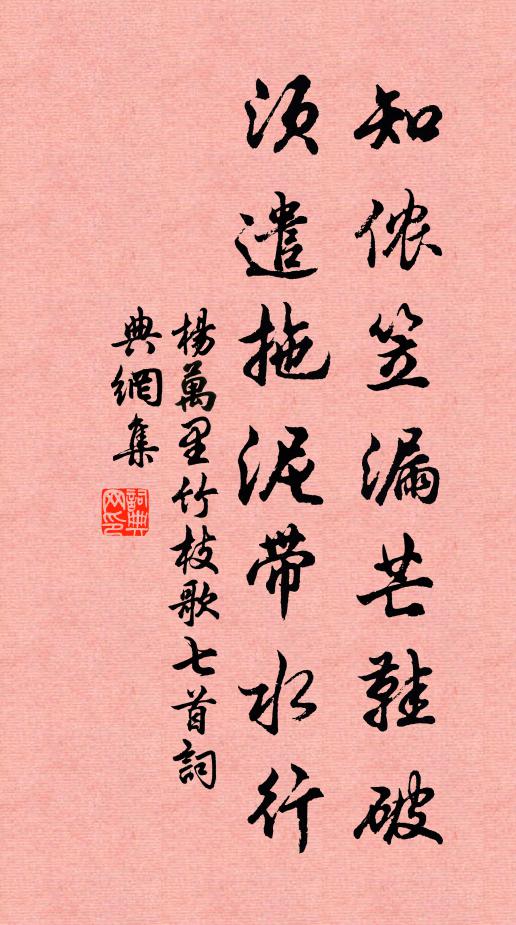 知侬笠漏芒鞋破
须遣拖泥带水行
楊萬里竹枝歌七首詞
典網集
詞典
网印